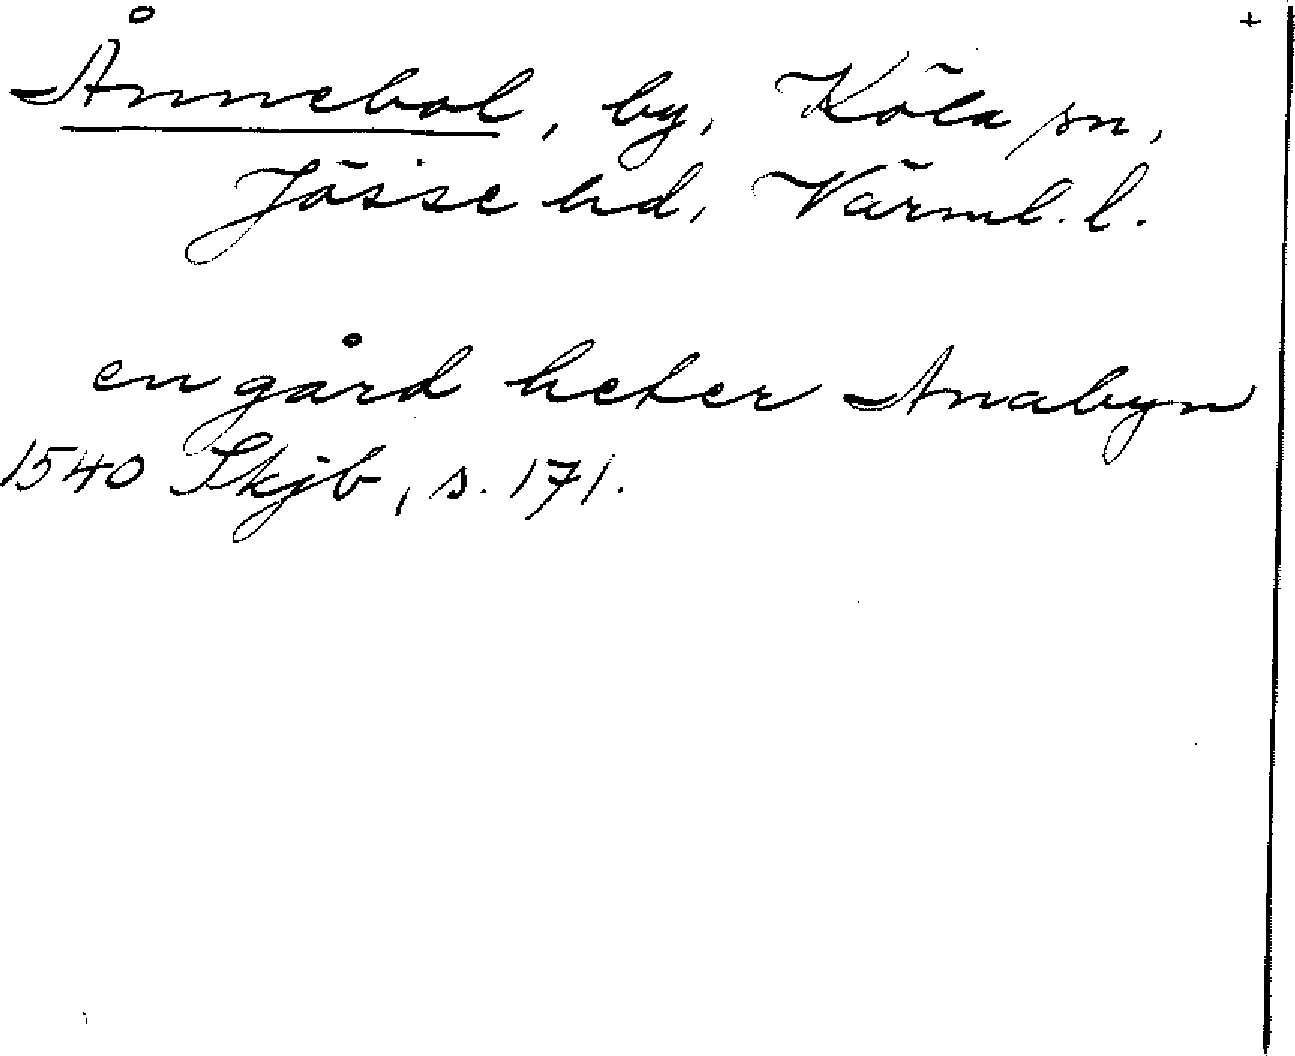 +
Ånnebol, by, Köla sn,
Jösse hd, Värml. l.
en gård heter Anabyn
1540 Skjb, s. 171.